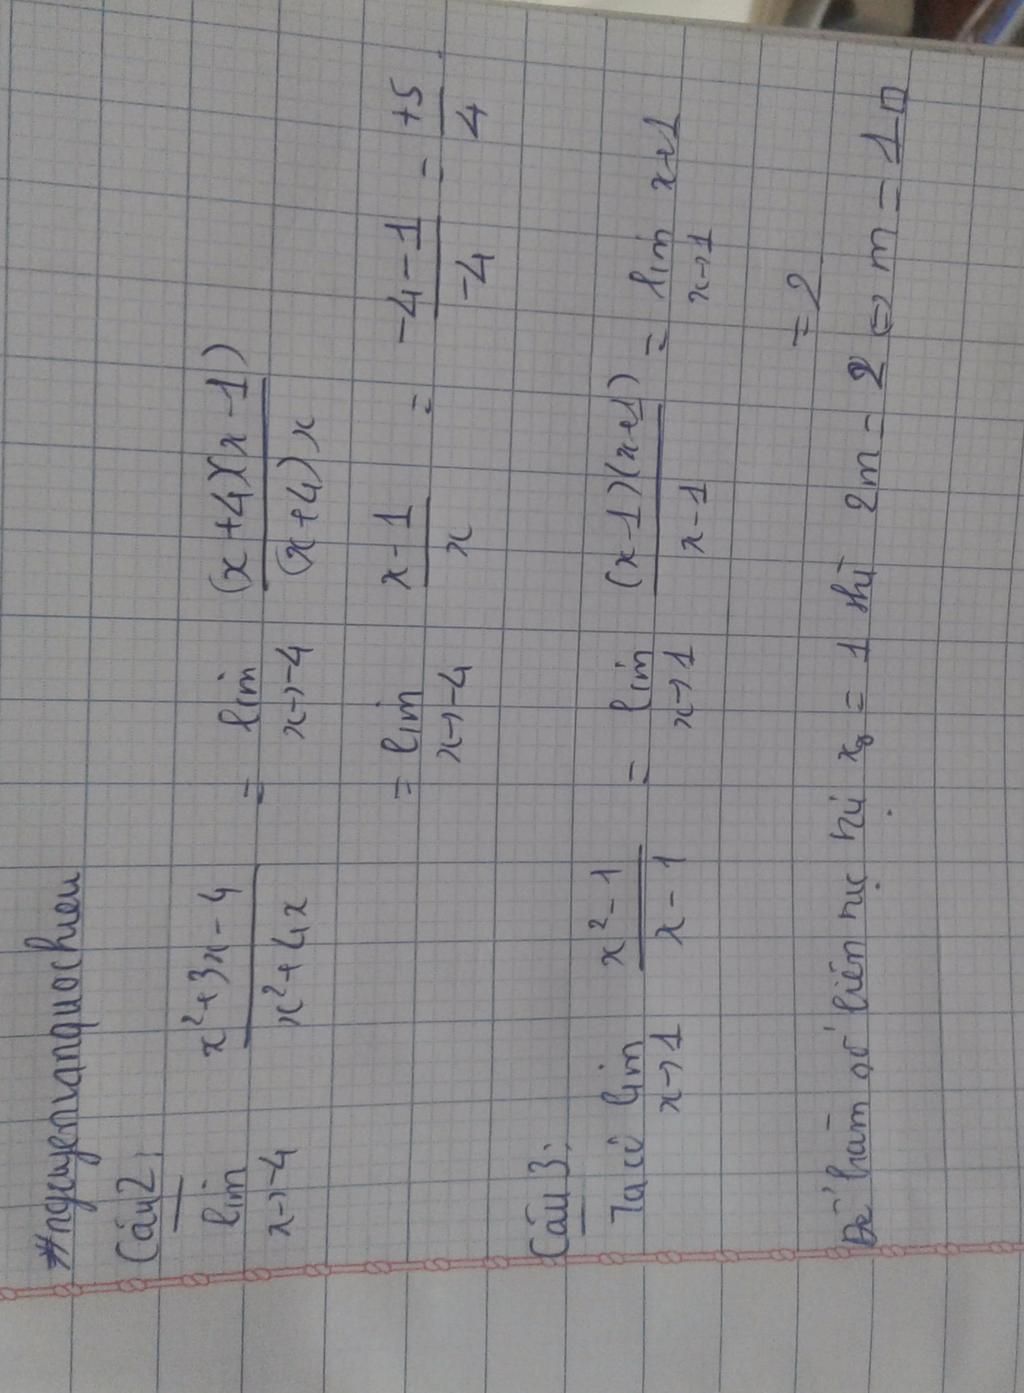 #nguyenvanquochieu
Câu 2:
lim x→-4 (x²+3x-4)/(x²+4x) = lim x→-4 ((x+4)(x-1))/((x+4)x)
= lim x→-4 (x-1)/x = (-4-1)/(-4) = +5/4.
Câu 3:
Ta có lim x→1 (x²-1)/(x-1) = lim x→1 ((x-1)(x+1))/(x-1) = lim x→1 x+1
= 2
Để hàm số liên tục tại x₀ = 1 thì 2m = 2 ⇔ m = 1 □